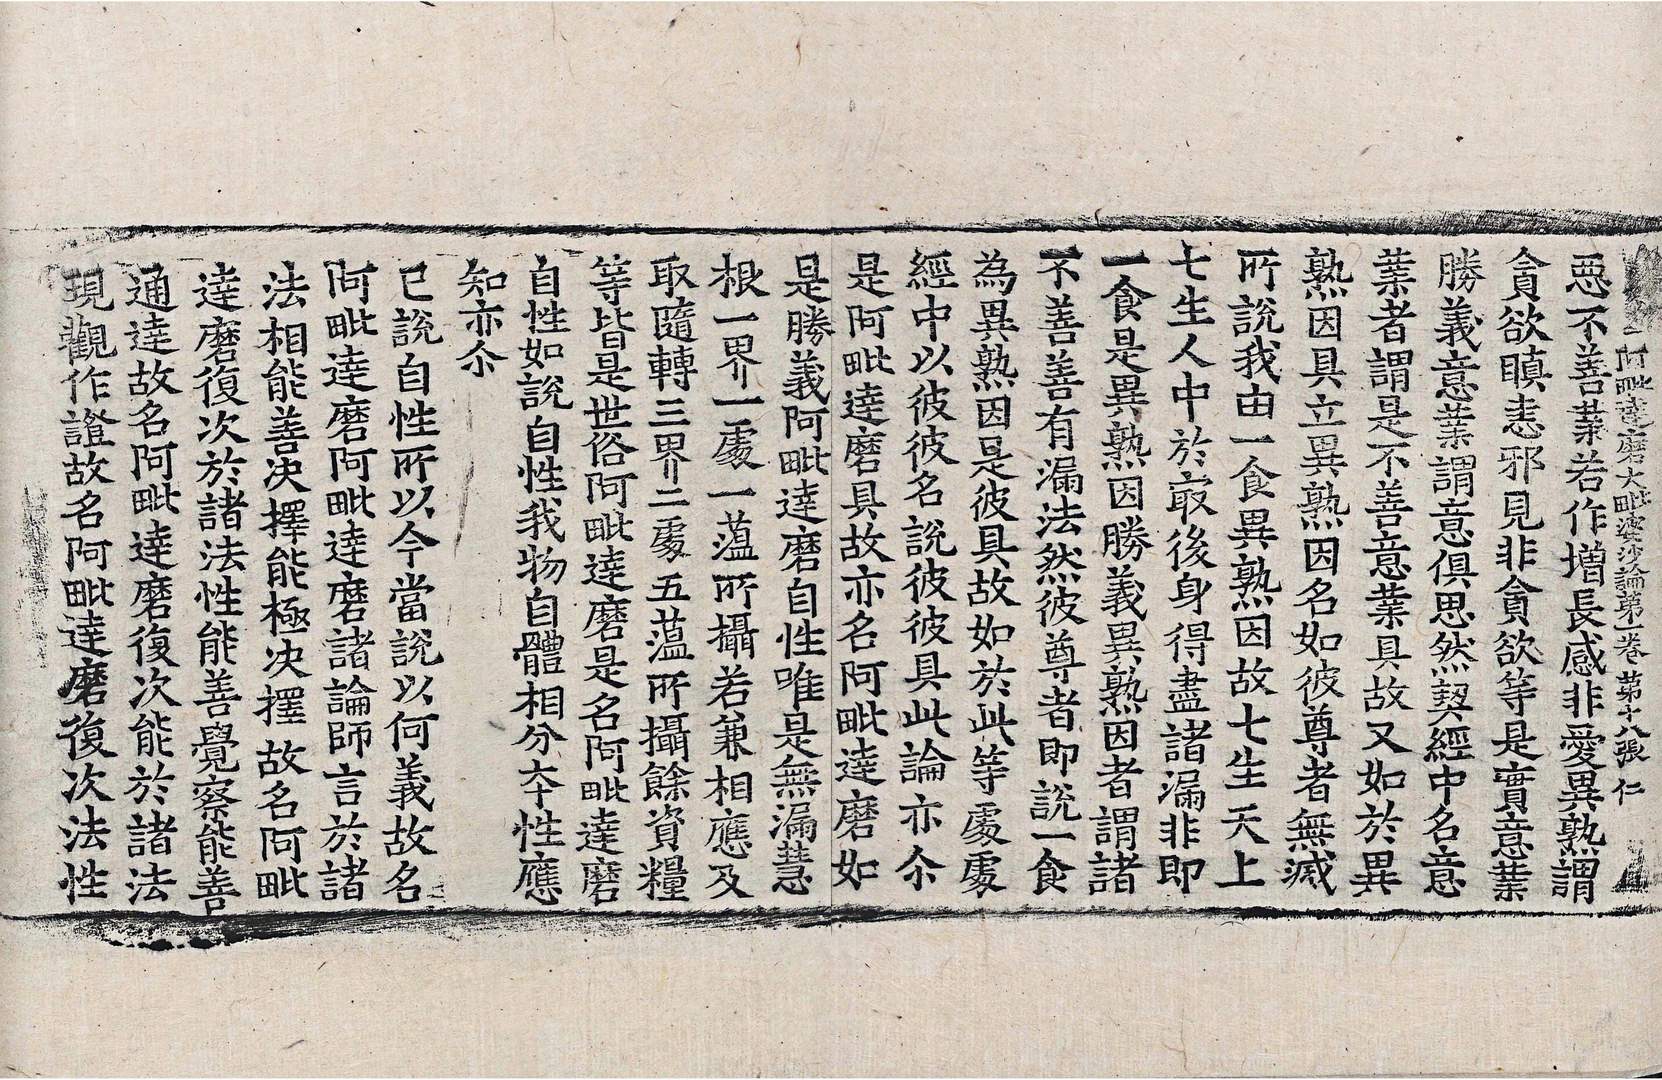 阿毗達磨大毗婆沙論第一卷 第十八張 仁
惡不善業若作增長感非愛異熟謂
貪欲瞋恚邪見非貪欲等是實意業
勝義意業謂意俱思然契經中名意
業者謂是不善意業具故又如於異
熟因具立異熟因名如彼尊者無滅
所說我由一食異熟因故七生天上
七生人中於㝡後身得盡諸漏非即
一食是異熟因勝義異熟因者謂諸
不善善有漏法然彼尊者即說一食
為異熟因是彼具故如於此等處處
經中以彼彼名說彼彼具此論亦尒
是阿毗達磨具故亦名阿毗達磨如
是勝義阿毗達磨自性唯是無漏慧
根一界一處一蘊所攝若兼相應及
取隨轉三界二處五蘊所攝餘資糧
等皆是世俗阿毗達磨是名阿毗達磨
自性如說自性我物自體相分夲性應
知亦尒
已說自性所以今當說以何義故名
阿毗達磨阿毗達磨諸論師言於諸
法相能善決擇能極決擇故名阿毗
達磨復次於諸法性能善覺察能善
通達故名阿毗達磨復次能於諸法
現觀作證故名阿毗達磨復次法性